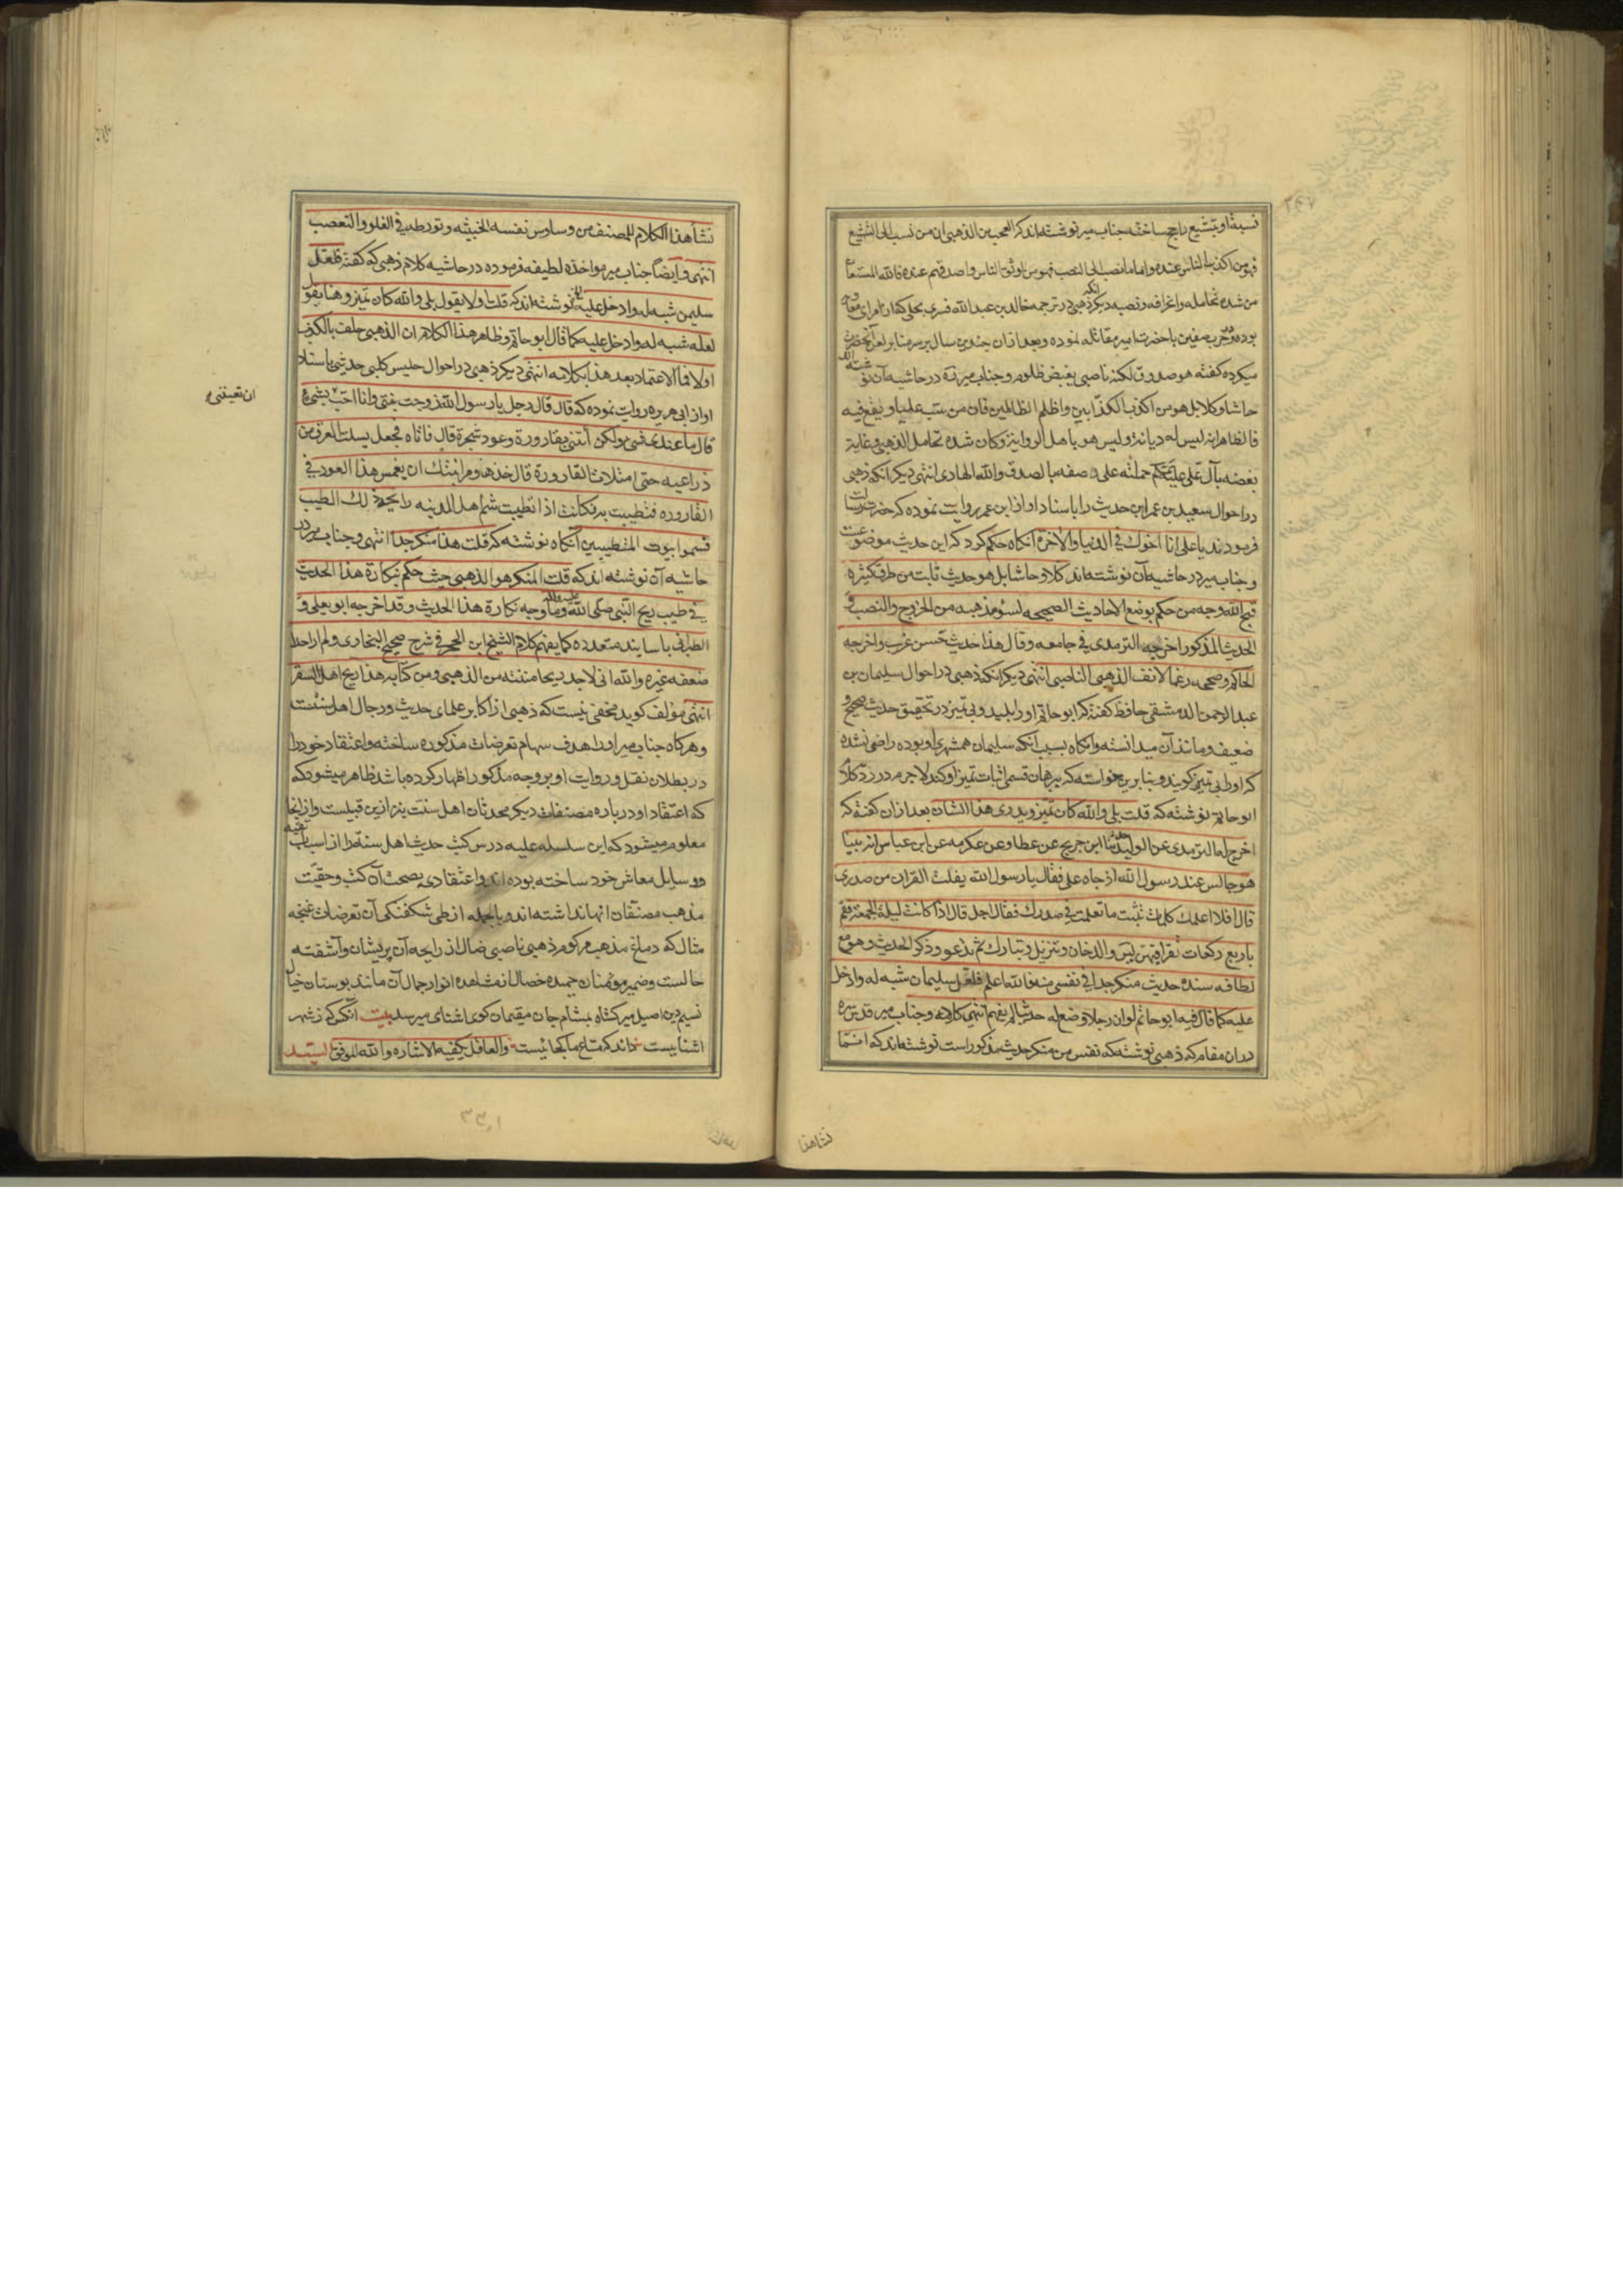 نسبة او بتشیع راجح ساخته جناب میر نوشته‌اند که العجب من الذهبی ان من نسب الی التشیع
فهو من اکذب الناس عنده و اما من نسب الی النصب فهو من اوثق الناس و اصدقهم عنده فالله المستعان
من شدة تحامله و اغرافه و نصبه دیگر انکه ذهبی در ترجمه خالد بن عبد الله قسری بجلی که از امرای
بوده و در حرب صفین با حضرت امیر مقاتله نموده و بعد از ان چندین سال بر سر منابر لعن آنحضرت
میکرده گفته هو صدوق لکنه ناصبی بغیض ظلوم و جناب میر در حاشیه آن نوشته‌اند
حاشا و کلا بل هو من اکذب الکذابین و اظلم الظالمین فان من یسب علیا و یقع فیه
فالظاهر انه لیس له دیانة و لیس هو باهل الروایة و کان شدة تحامل الذهبی و غایة
بغضه بآل علی علیهم حملته علی وصفه بالصدق و الله الهادی انتهی دیگر انکه ذهبی
در احوال سعید بن عمر این حدیث را باسناد او از ابن عمر روایت نموده که حضرت رسالت
فرمودند یا علی انا اخوک فی الدنیا و الاخرة آنکاه حکم کرد که این حدیث موضوعست
و جناب میر در حاشیه آن نوشته‌اند کلا و حاشا بل هو حدیث ثابت من طرق کثیره
قبح الله وجه من حکم بوضع الاحادیث الصحیحه لسوء مذهبه من الخروج و النصب و
الحدیث المذکور اخرجه الترمدی فی جامعه و قال هذا حدیث حسن غریب و اخرجه
الحاکم و صححه رغما لانف الذهبی الناصبی انتهی دیگر انکه ذهبی در احوال سلیمان بن
عبد الرحمن الدمشقی حافظ گفته که ابو حاتم او را بلید و بی تمیز در تحقیق حدیث صحیح و
ضعیف و مانند آن میدانسته و آنکاه بسبب انکه سلیمان همشهری او بوده راضی نشده
که او را بی تمیز گویند و بنا برین خواسته که ببرهان قسمی اثبات تمیز او کند لاجرم در رد کلام
ابو حاتم نوشته که قلت بلی و الله کان تمیز و یدری هذا الشان بعد از ان گفته که
اخرج له الترمدی عن الولید ثنا ابن جریج عن عطا و عن عکرمه عن ابن عباس انه بینا
هو جالس عند رسول الله اذ جاه علی فقال یا رسول الله یفلت القران من صدری
قال افلا اعلمک کلمات تثبت ما تعلمت فی صدرک فقال اجل قال اذا کانت لیلة الجمعة فقم
باربع رکعات تقرا فیهن لیس و الدخان و تنزیل و تبارک ثم تدعو و ذکر الحدیث و هو مع
لطافه سنده حدیث منکر جدا فی نفسی منه فالله اعلم فلعل سلیمان شبه له و ادخل
علیه کما قال فیه ابو حاتم لو ان رجلا وضع له حدیثا لم یفهم انتهی کلامه و جناب میر قدس سره
در ان مقام که ذهبی نوشته که نفس من منکر حدیث مذکور راست نوشته‌اند که انما
نشاهنا
نشأ هذا الکلام للمصنف من وساوس نفسه الخبیثه و تورطه فی الغلو و التعصب
انتهی و ایضاً جناب میر مواخذه لطیفه فرموده در حاشیه کلام ذهبی که گفته فلعل
سلیمن شبه له و ادخل علیه نوشته‌اند که قلت اولا یقول بلی و الله کان تمیز و هنا یقول
لعله شبه له و ادخل علیه کما قال ابو حاتم و ظاهر هذا الکلام ان الذهبی حلف بالکذب
اولا فلا اعتماد بعد هذا بکلامه انتهی دیگر ذهبی در احوال حلیس کلبی حدیثی باسناد
او از ابی هریره روایت نموده که قال قال رجل یا رسول الله زوجت بنتی و انا احب بشیء
ان تعیننی
قال ما عندی شیء ولکن أتنی بقارورة و عود شجرة قال فاتاه فجعل یسلت العرق من
ذراعیه حتی امتلات القارورة قال خذ هذه و مر ابنتک ان یغمس هذا العود فی
القاروره فتطیبت به فکانت اذا تطیبت شم اهل المدینه رایحة ذلک الطیب
فسموا بیوت المتطیبین آنکاه نوشته که قلت هذا منکر جدا انتهی و جناب میر در
حاشیه آن نوشته‌اند که قلت المنکر هو الذهبی حیث حکم بنکارة هذا الحدیث
فی طیب ریح النبی صلی الله علیه و آله و ما وجه نکارة هذا الحدیث و قد اخرجه ابو یعلی و
الطبرانی باسانید متعدده کما یفهم کلام الشیخ ابن الحجر فی شرح صحیح البخاری و لم ار احدا
ضعفه غیره و الله انی لاجد ریحا منتنه من الذهبی و من کتابه هذا ریح اهل السقر
انتهی مؤلف گوید مخفی نیست که ذهبی از اکابر علمای حدیث و رجال اهل سنت
و هرکاه جناب میر او را هدف سهام تعرضات مذکوره ساخته و اعتقاد خود را
در بطلان نقل و روایت او بر وجه مذکور اظهار کرده باشد ظاهر میشود که
که اعتقاد او درباره مصنفات دیگر محدثان اهل سنت نیز ازین قبیلست و از اینجا
معلوم میشود که این سلسله علیه درس کتب حدیث اهل سنة را از اسباب تقیه
و وسایل معاش خود ساخته بوده‌اند و اعتقادی بصحت آن کتب و حقیت
مذهب مصنفان انها نداشته‌اند و بالجمله از طی شکفتکی آن تعرضات غنچه
مثال که دماغ مذهب مزکوم ذهبی ناصبی ضال از رایحه آن پریشان و آشفته
حالست و ضمیر مؤمنان حمیده خصال از مشاهده انوار جمال آن مانند بوستان خیال
نسیم دین اصیل میرکشاه بمشام جان مقیمان کوی اشنای میرسد بیت آنکس که ز شهر
اشناییست داند که متاع ما کجائیست و العاقل یکفیه الاشاره و الله الموفق السید